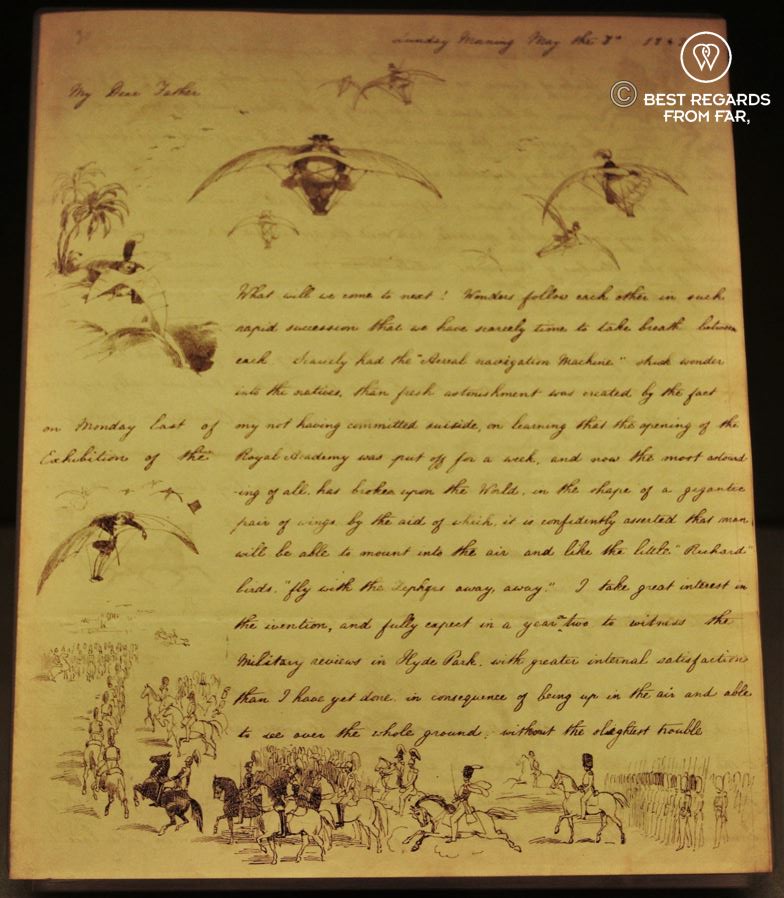 Sunday Morning May the 7th 184
© BEST REGARDS
FROM FAR,
My Dear Father
What will we come to next! Wonders follow each other in such
rapid succession that we have scarcely time to take breath between
each. Scarcely had the "Aereal navigation Machine" struck wonder
into the natives, than fresh astonishment was created by the fact
on Monday last of my not having committed suicide, on learning that the opening of the
Exhibition of the Royal Academy was put off for a week, and now the most astound
-ing of all, has broken upon the World, in the shape of a gigantic
pair of wings, by the aid of which, it is confidently asserted that man
will be able to mount into the air and like the little "Richard"
birds, "fly with the Zephyrs away, away." I take great interest in
the ivention, and fully expect in a year or two to witness the
Military reviews in Hyde Park, with greater internal satisfaction
than I have yet done, in consequence of being up in the air and able
to see over the whole ground, without the slightest trouble